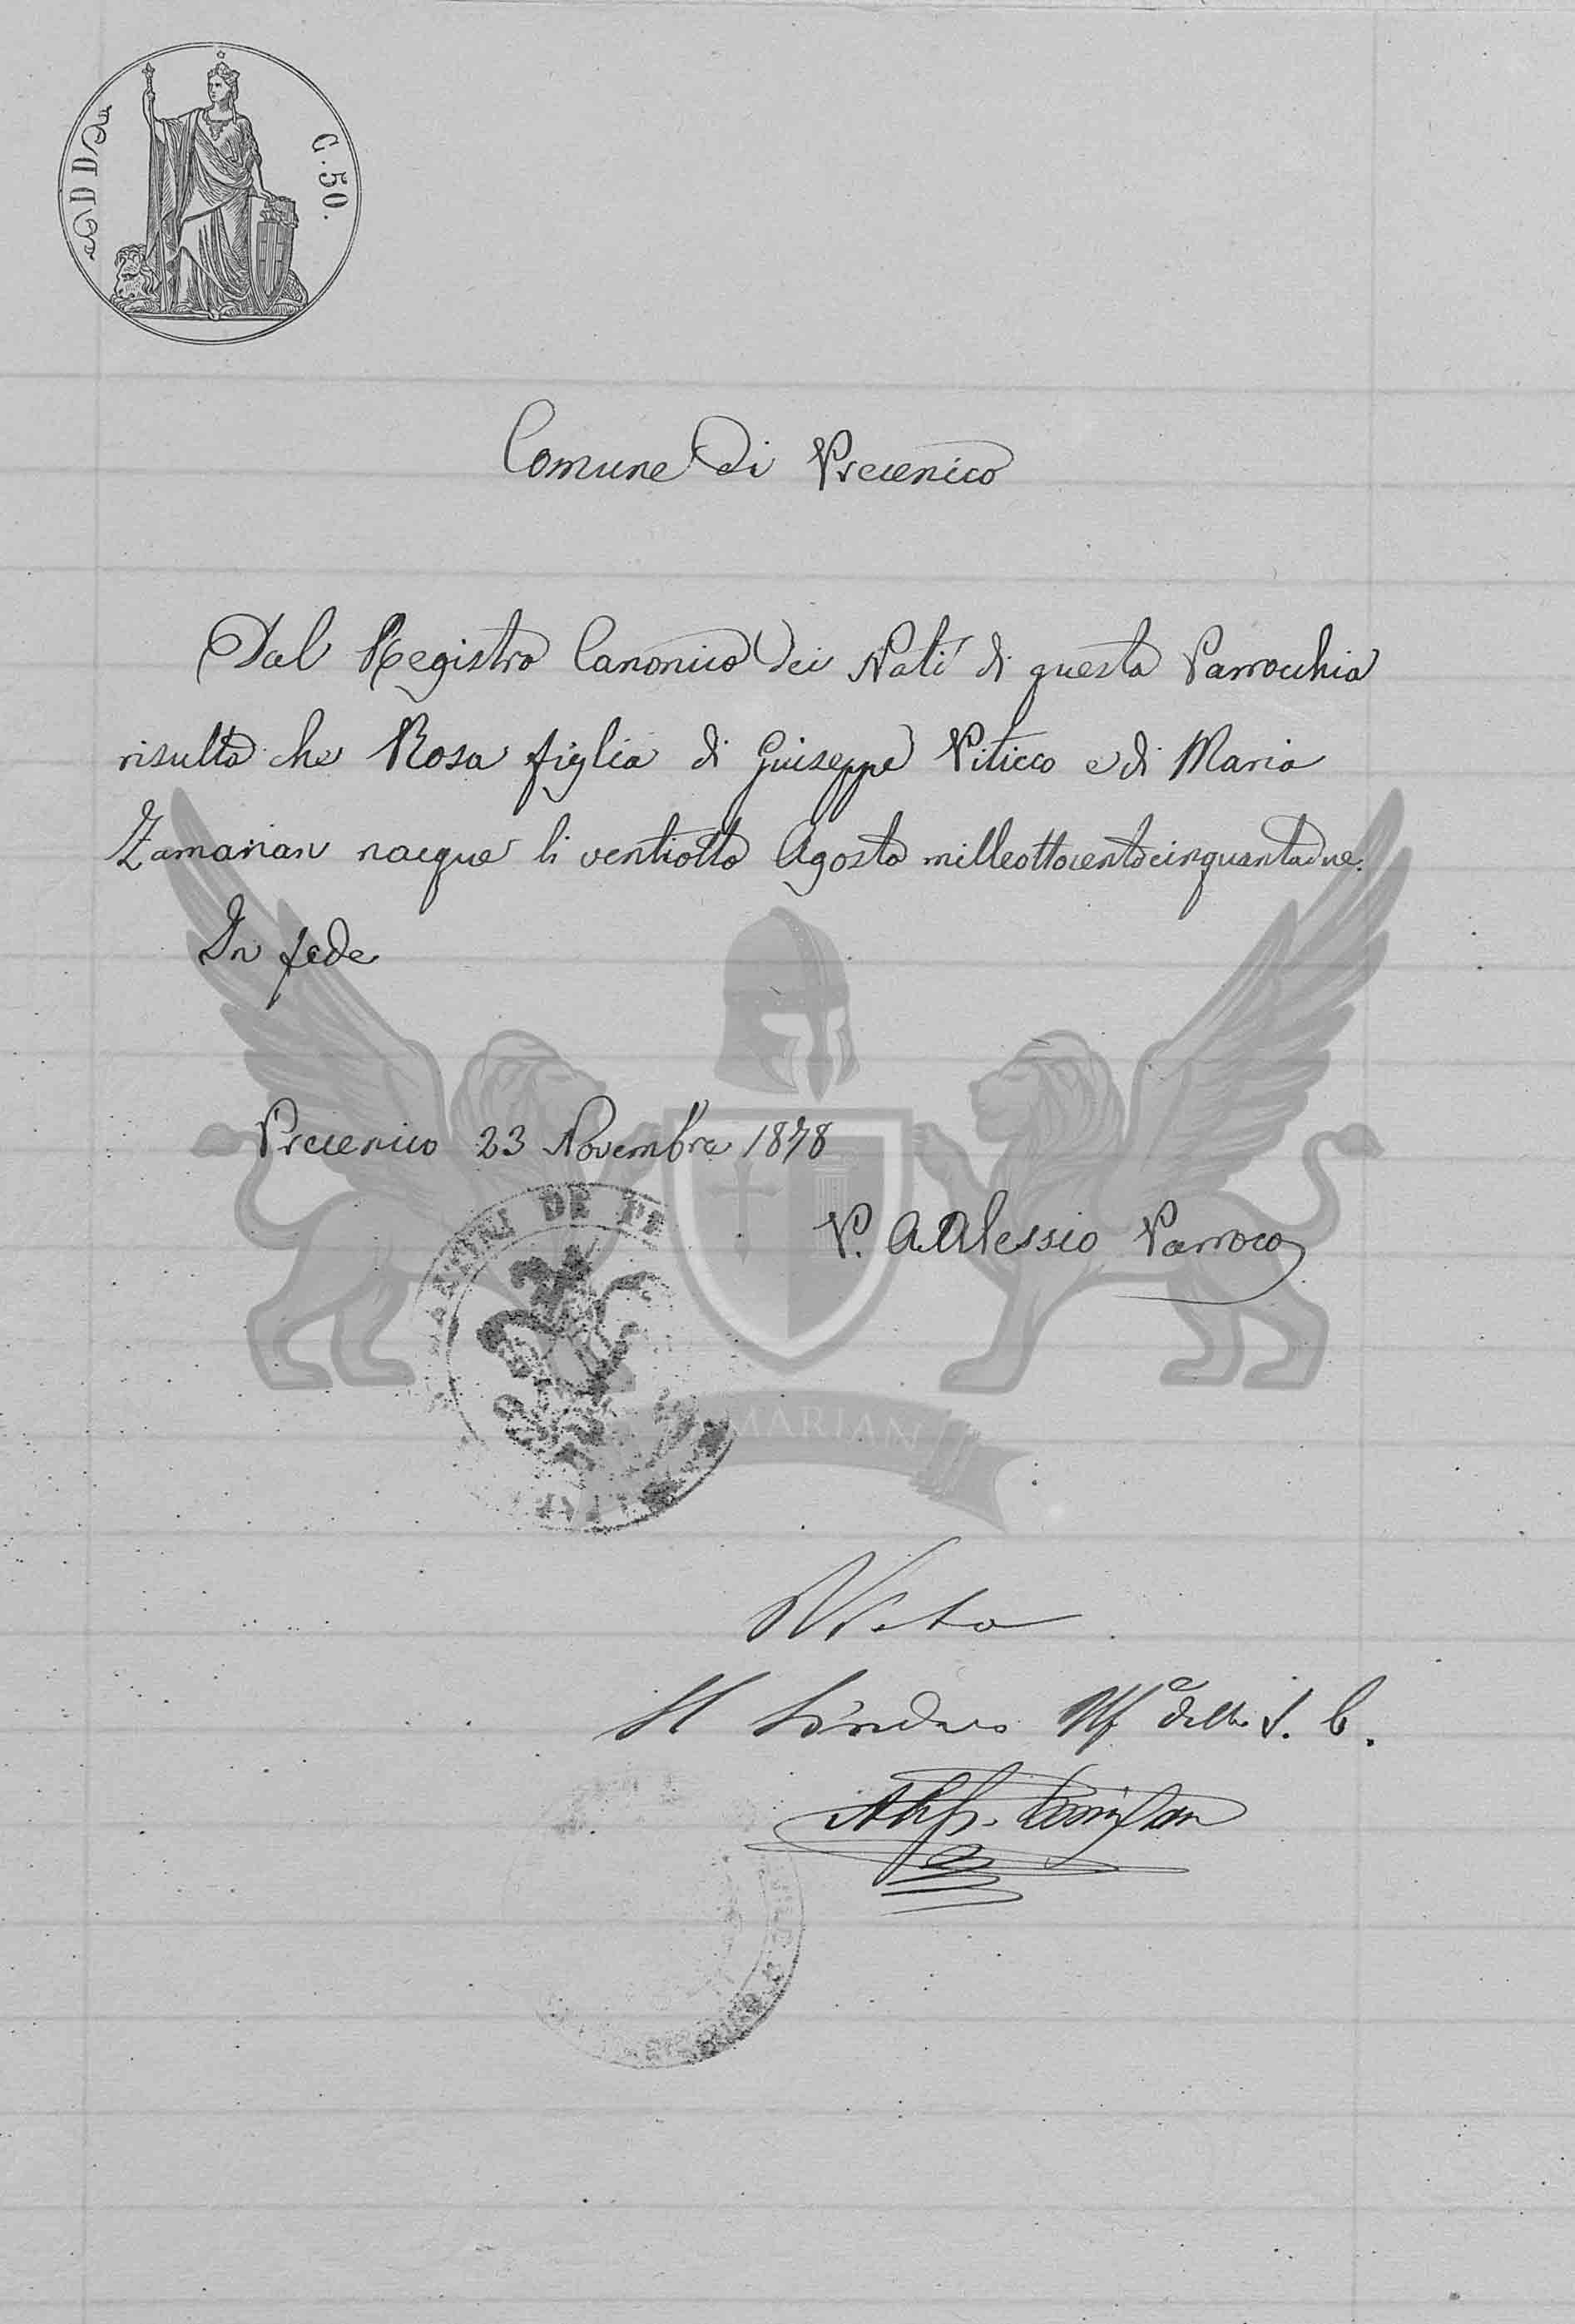 DD
C. 50.
Comune di Precenico
Dal Registro Canonico dei Nati di questa Parrocchia
risulta che Rosa figlia di Giuseppe Piticco e di Maria
Zamarian nacque li ventiotto Agosto milleottocentocinquantadue.
In fede
Precenico 23 Novembre 1878
P. A. Alessio Parroco
DE
MARIAN
Visto
Il Sindaco Uff.e dello S. C.